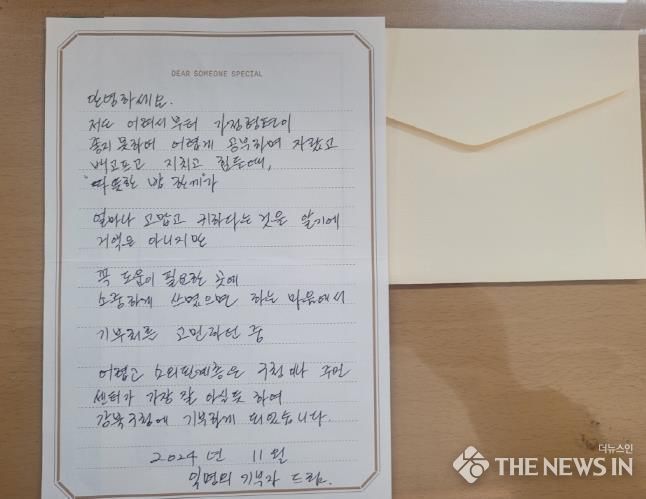 DEAR SOMEONE SPECIAL
안녕하세요.
저도 어려서부터 가정형편이
좋지 못하여 어렵게 공부하며 자랐고
배고프고 지치고 힘들때,
"따뜻한 밥 한끼"가
얼마나 고맙고 귀하다는 것을 알기에
거액은 아니지만
꼭 도움이 필요한 곳에
소중하게 쓰였으면 하는 마음에서
기부처를 고민하던 중
어렵고 소외된계층은 구청이나 주민
센터가 가장 잘 아실듯 하여
강북구청에 기부하게 되었습니다.
2024년 11월
익명의 기부자 드림.
더뉴스인
THE NEWS IN